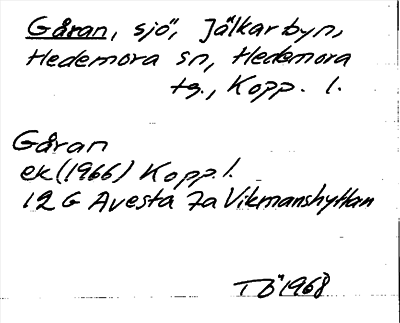 Gåran, sjö, Jälkarbyn,
Hedemora sn, Hedemora
tg., Kopp. l.
Gåran
ek (1966) Kopp. l.
12 G Avesta 7a Vikmanshyttan
TÖ 1968